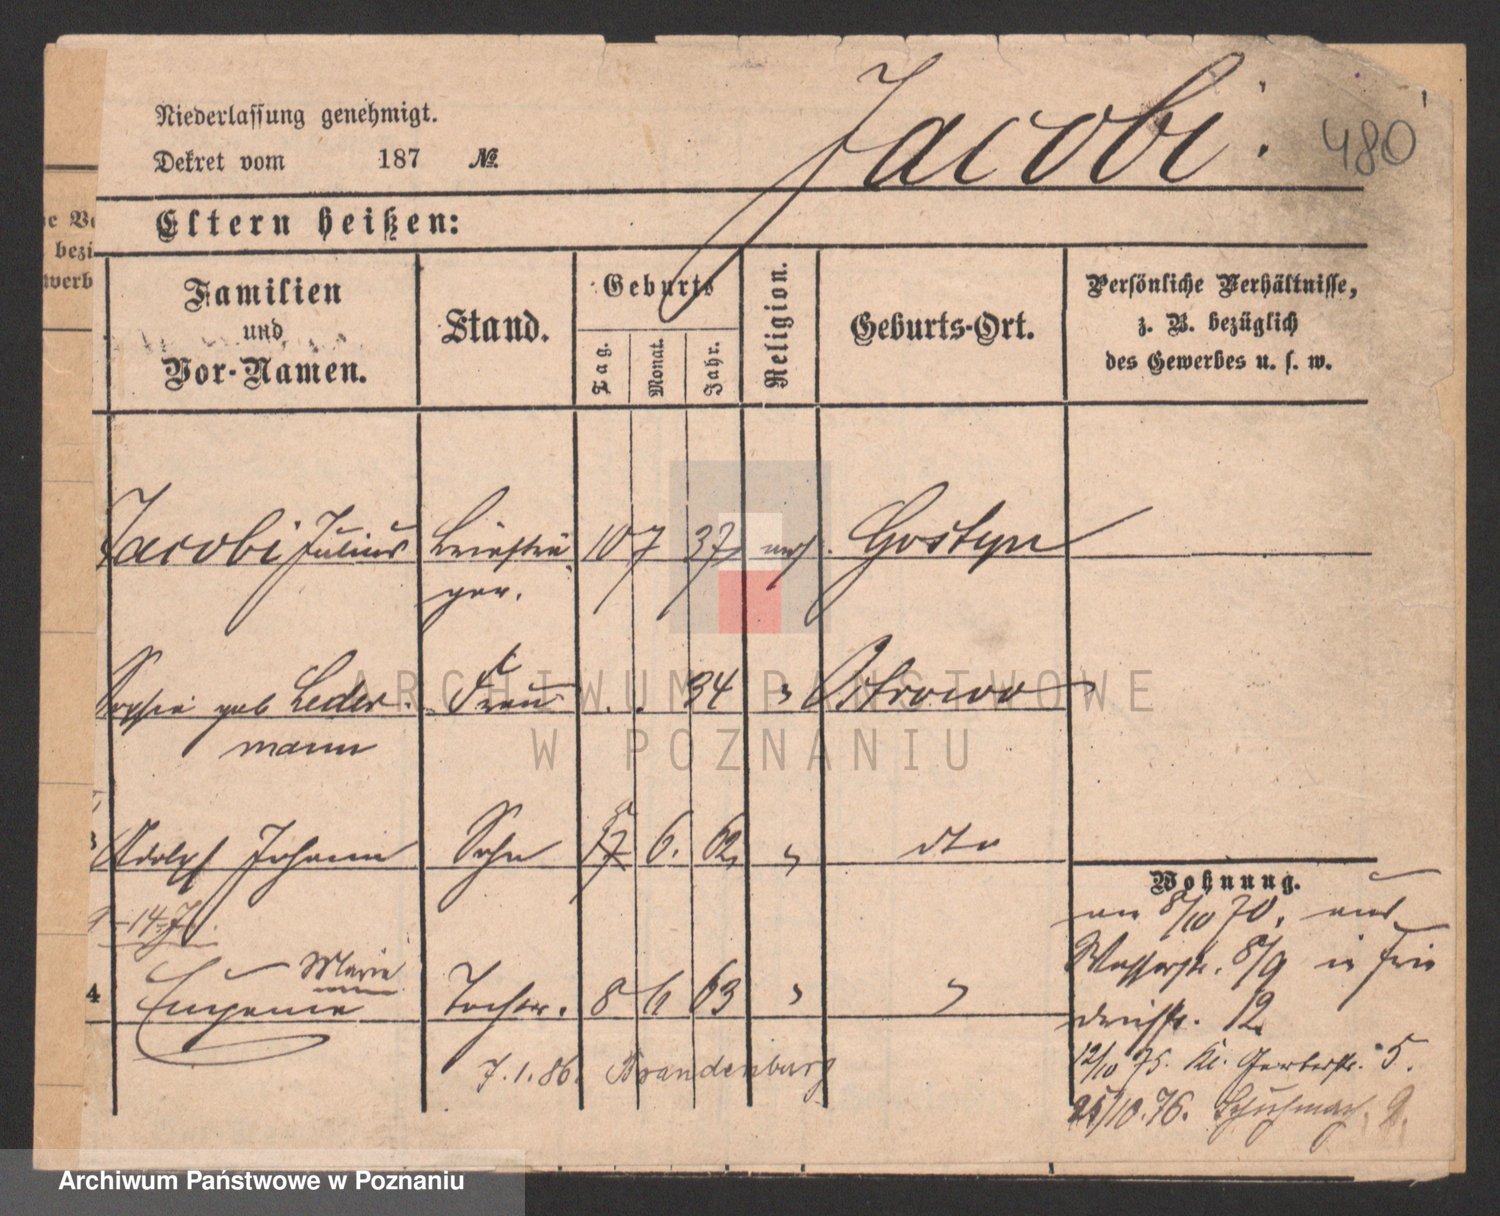 Jacobi.
480
Niederlassung genehmigt.
Dekret vom 187 №
Eltern heißen:
Familien und Vor-Namen.
Stand.
Geburts
Tag.
Monat.
Jahr.
Religion.
Geburts-Ort.
Persönliche Verhältnisse,
z. B. bezüglich
des Gewerbes u. s. w.
Jacobi Julius Briefträ 10 7 37 Gostyn
ger.
Sophie geb Leder- Frau 34 " Ostrowo
mann
Adolph Johann Sohn 6. 62 " dto
14 7
Marie
4 Eugenie Tochter. 8 6 63 " "
7.1.86. Brandenburg
Wohnung.
8/10 70, aus
Wasserstr. 8/9 in Frie
drichstr. 12
12/10 75. Kl. Gerberstr. 5.
25/10.76. Schuhmach. 9.
ARCHIWUM PAŃSTWOWE
W POZNANIU
Archiwum Państwowe w Poznaniu